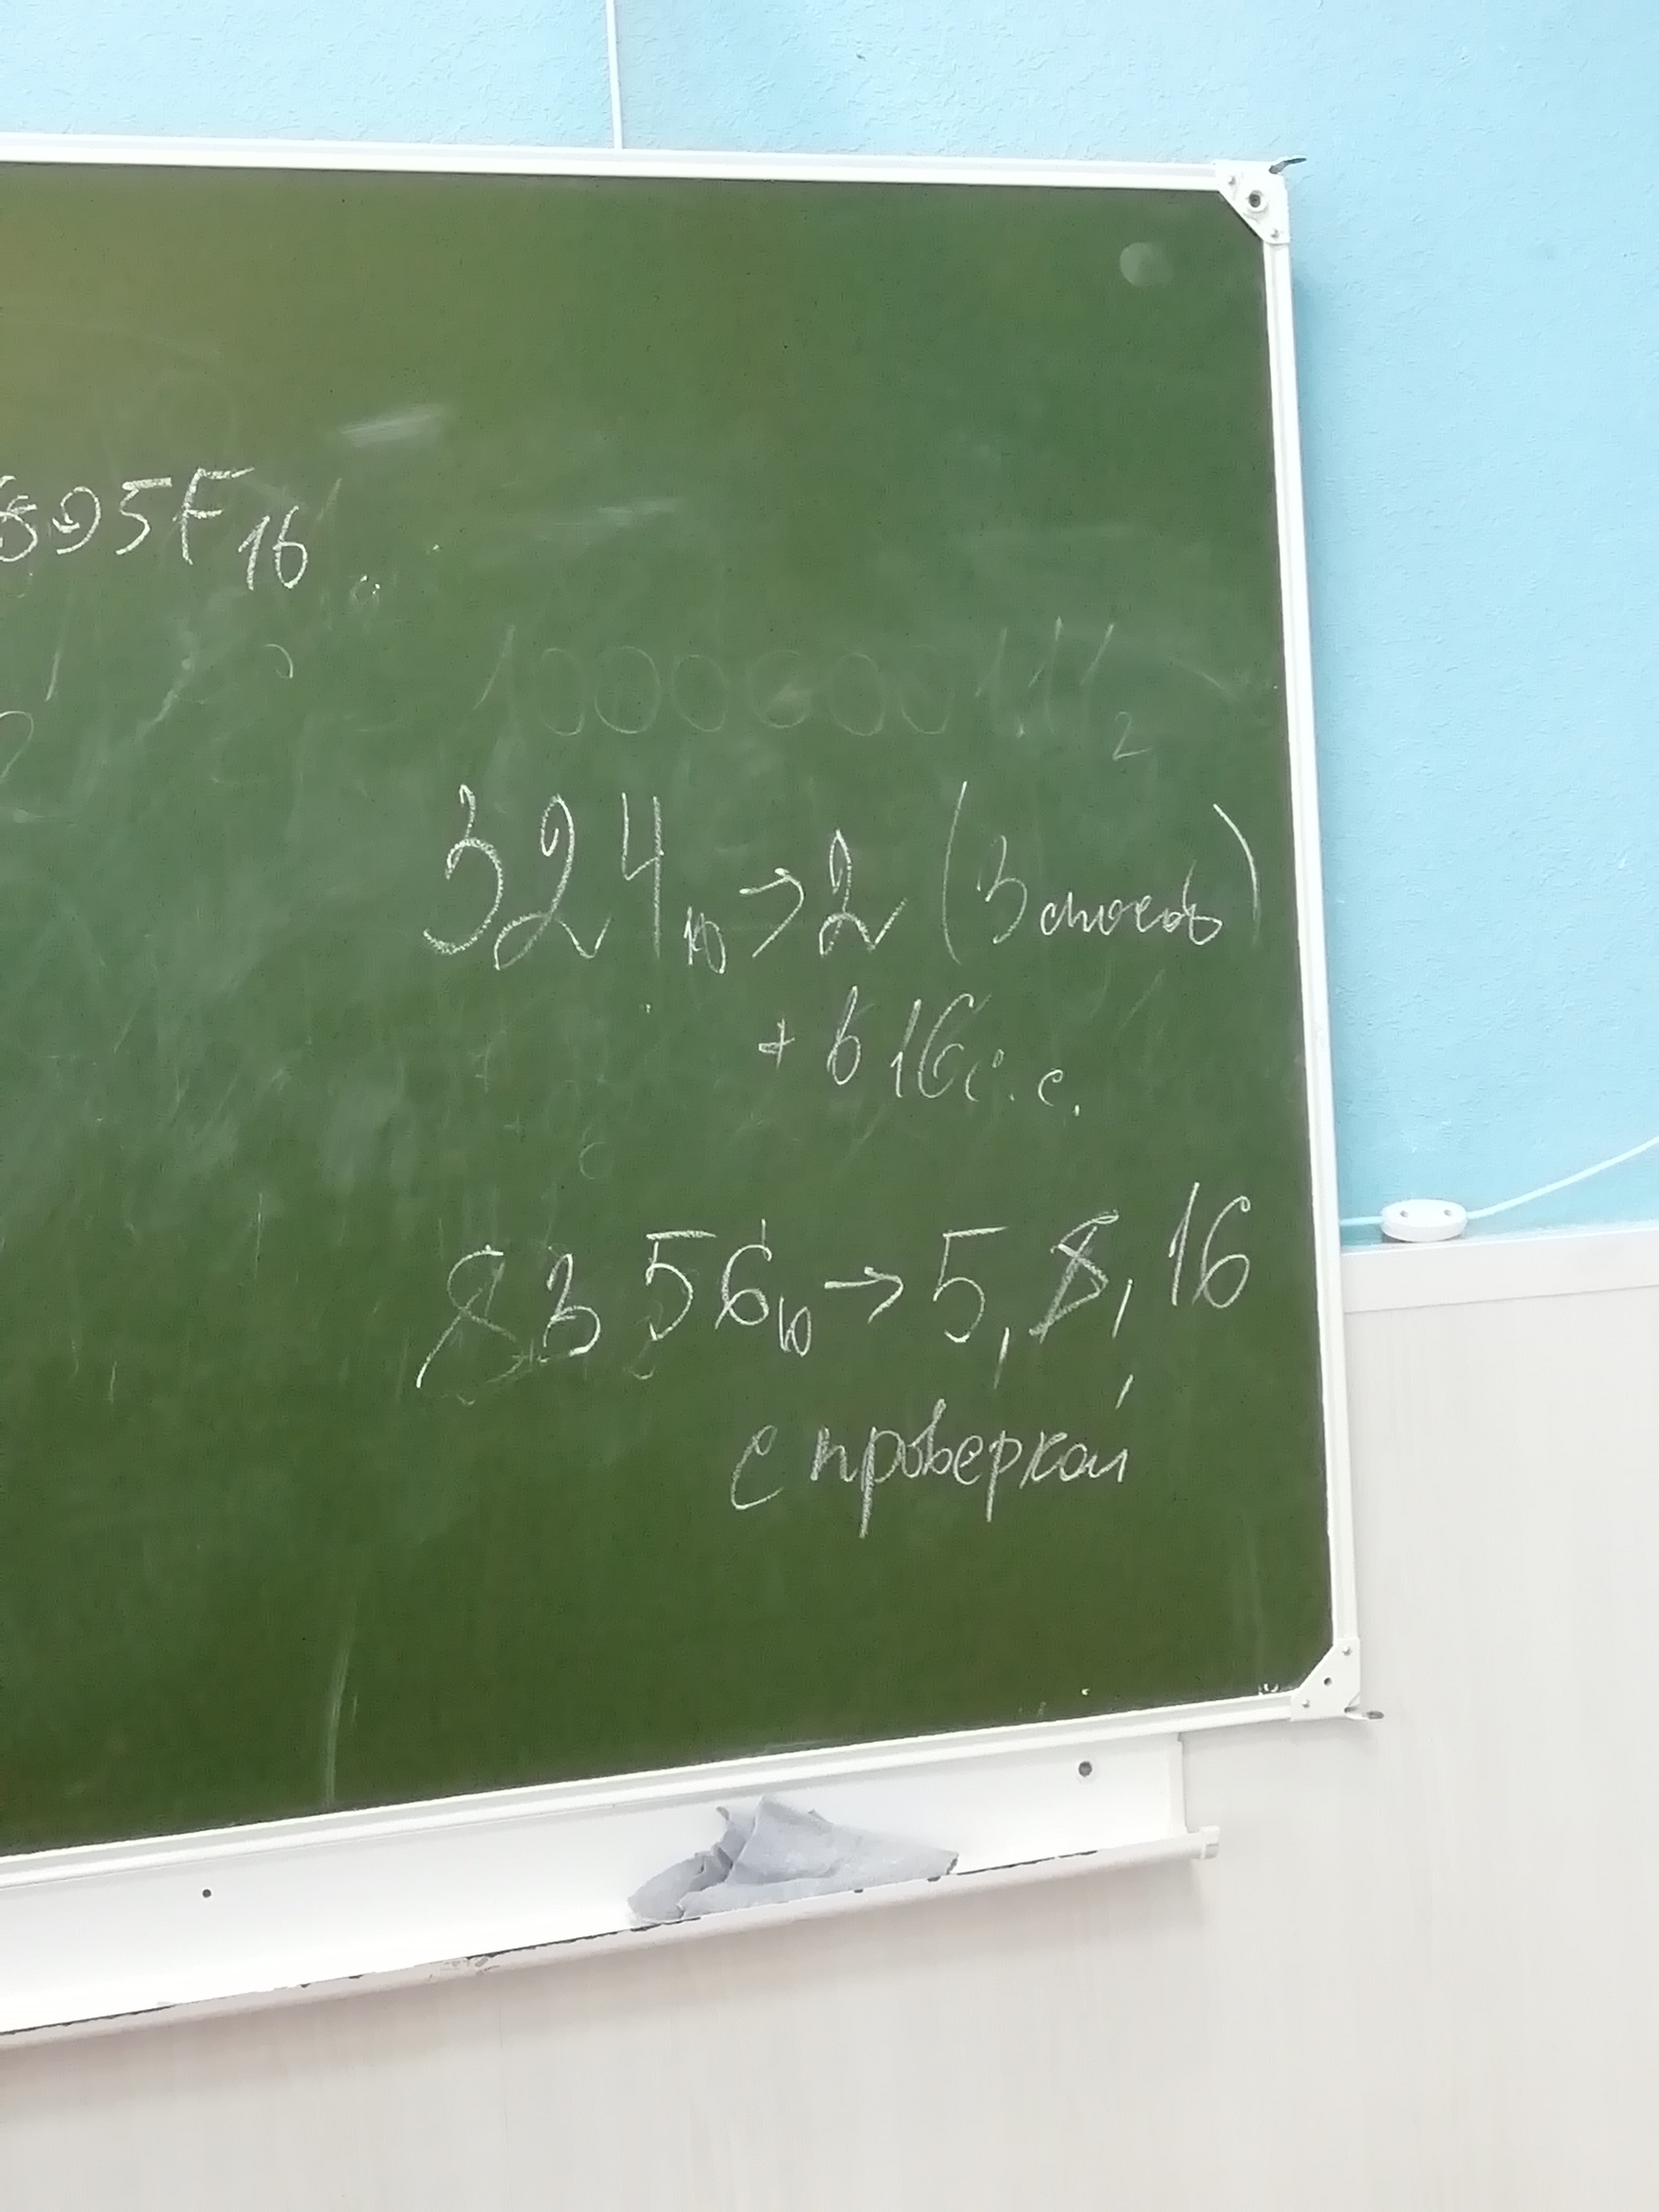 895F₁₆
1000000111₂
324₁₀→2 (3 способ)
+ в 16 с. с.
8356₁₀→5, 8, 16
с проверкой